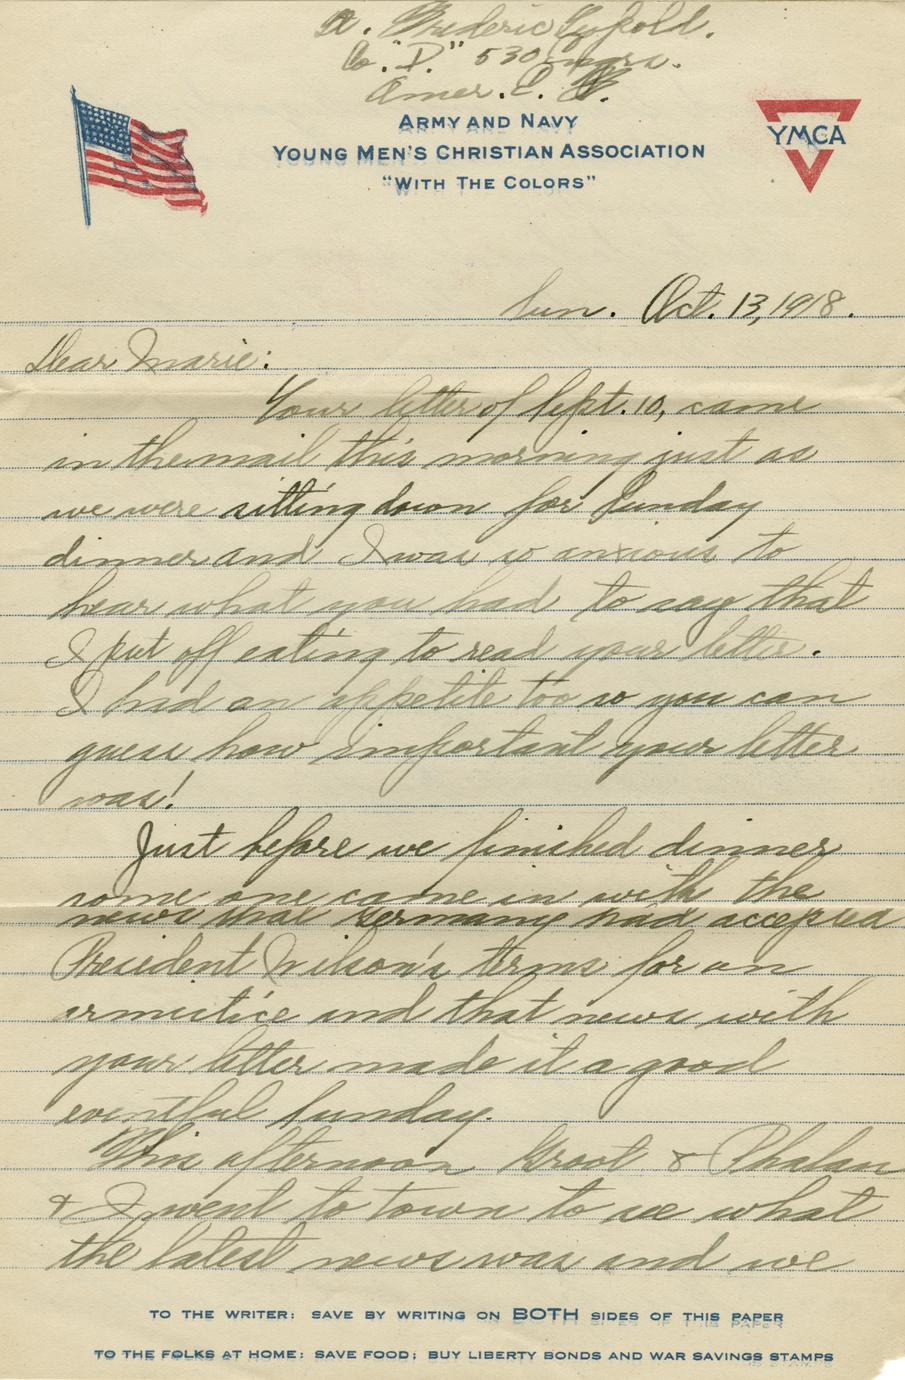 A. Frederic Lupold.
Co. "D." 530 Engrs.
Amer. E. F.
ARMY AND NAVY
YOUNG MEN'S CHRISTIAN ASSOCIATION
"WITH THE COLORS"
YMCA
Sun. Oct. 13, 1918.
Dear Marie:
Your letter of Sept. 10, came
in the mail this morning just as
we were sitting down for Sunday
dinner and I was so anxious to
hear what you had to say that
I put off eating to read your letter.
I had an appetite too so you can
guess how important your letter
was!
Just before we finished dinner
some one came in with the
news that Germany had accepted
President Wilson's terms for an
armistice and that news with
your letter made it a good
eventful Sunday.
This afternoon & Phalan
& I went to town to see what
the latest news was and we
TO THE WRITER: SAVE BY WRITING ON BOTH SIDES OF THIS PAPER
TO THE FOLKS AT HOME: SAVE FOOD; BUY LIBERTY BONDS AND WAR SAVINGS STAMPS